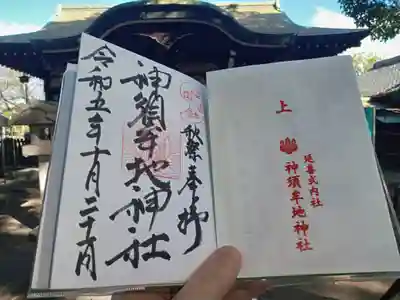 秋祭奉拝
神須牟地神社
令和五年十月二十六日
上
延喜式内社
神須牟地神社